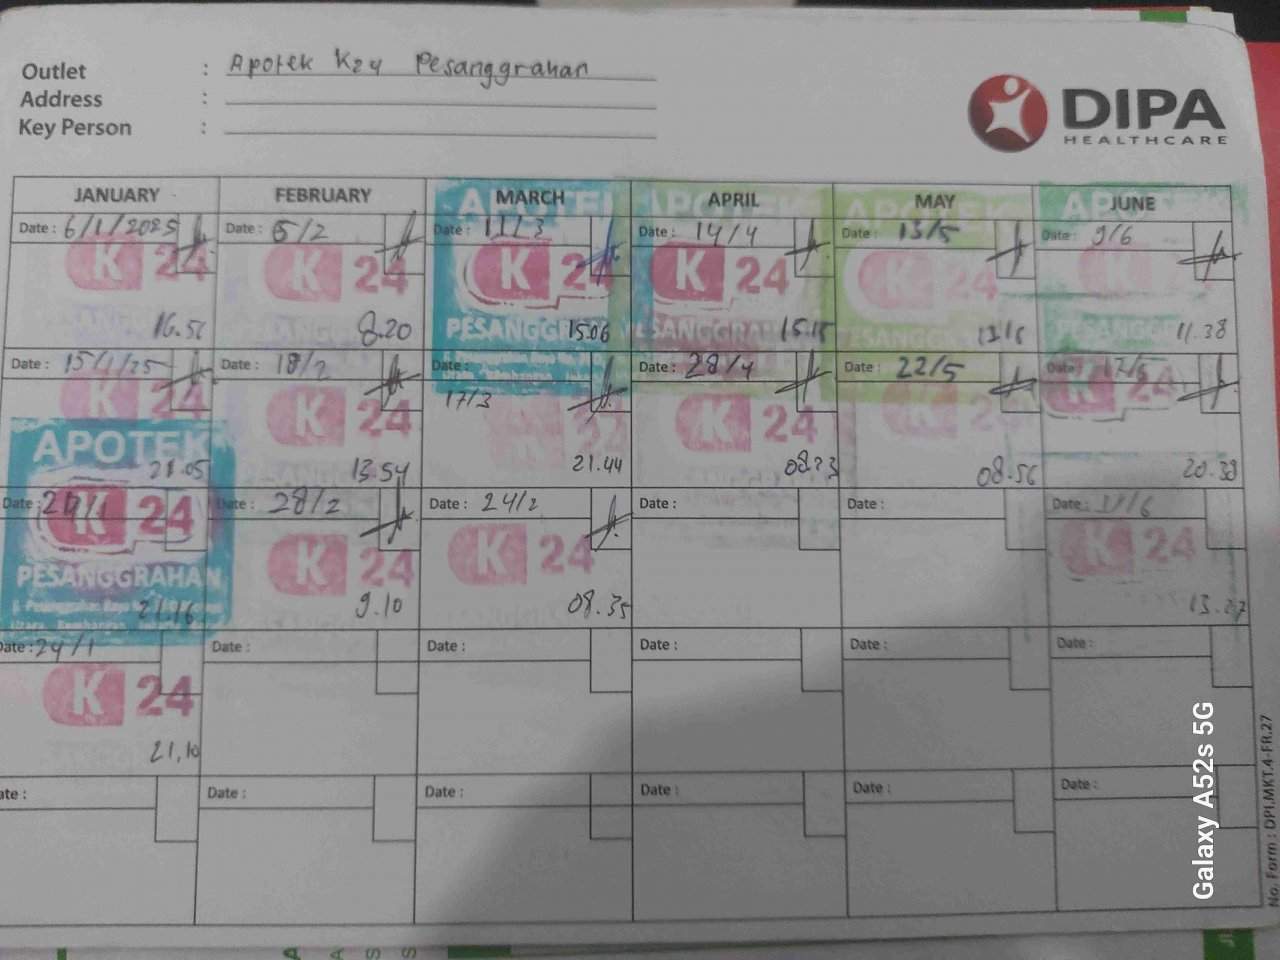 Outlet : Apotek K24 Pesanggrahan
Address :
Key Person :
DIPA
HEALTHCARE
JANUARY FEBRUARY MARCH APRIL MAY JUNE
Date : 6/1/2025 Date : 5/2 Date : 11/3 Date : 14/4 Date : 13/5 Date : 9/6
K 24 K 24 K 24 K 24 K 24 K
PESANGGRAHAN
8.20 15.06 15.15 11.38
Date : 15/1/25 Date : 18/2 Date : 17/3 Date : 28/4 Date : 22/5 Date :
K 24 K 24 24 K 24 K 24 K 24
21.05 13.54 21.44 08.23 08.56 20.38
APOTEK
Date : Date : 28/2 Date : 24/2 Date : Date : Date :
K 24 K 24 K 24 K 24
PESANGGRAHAN
21.16 9.10 08.35
Date : 24/1 Date : Date : Date : Date : Date :
K 24
21,10
ate : Date : Date : Date : Date : Date :
No. Form : DPI.MKT.4-FR.27
Galaxy A52s 5G